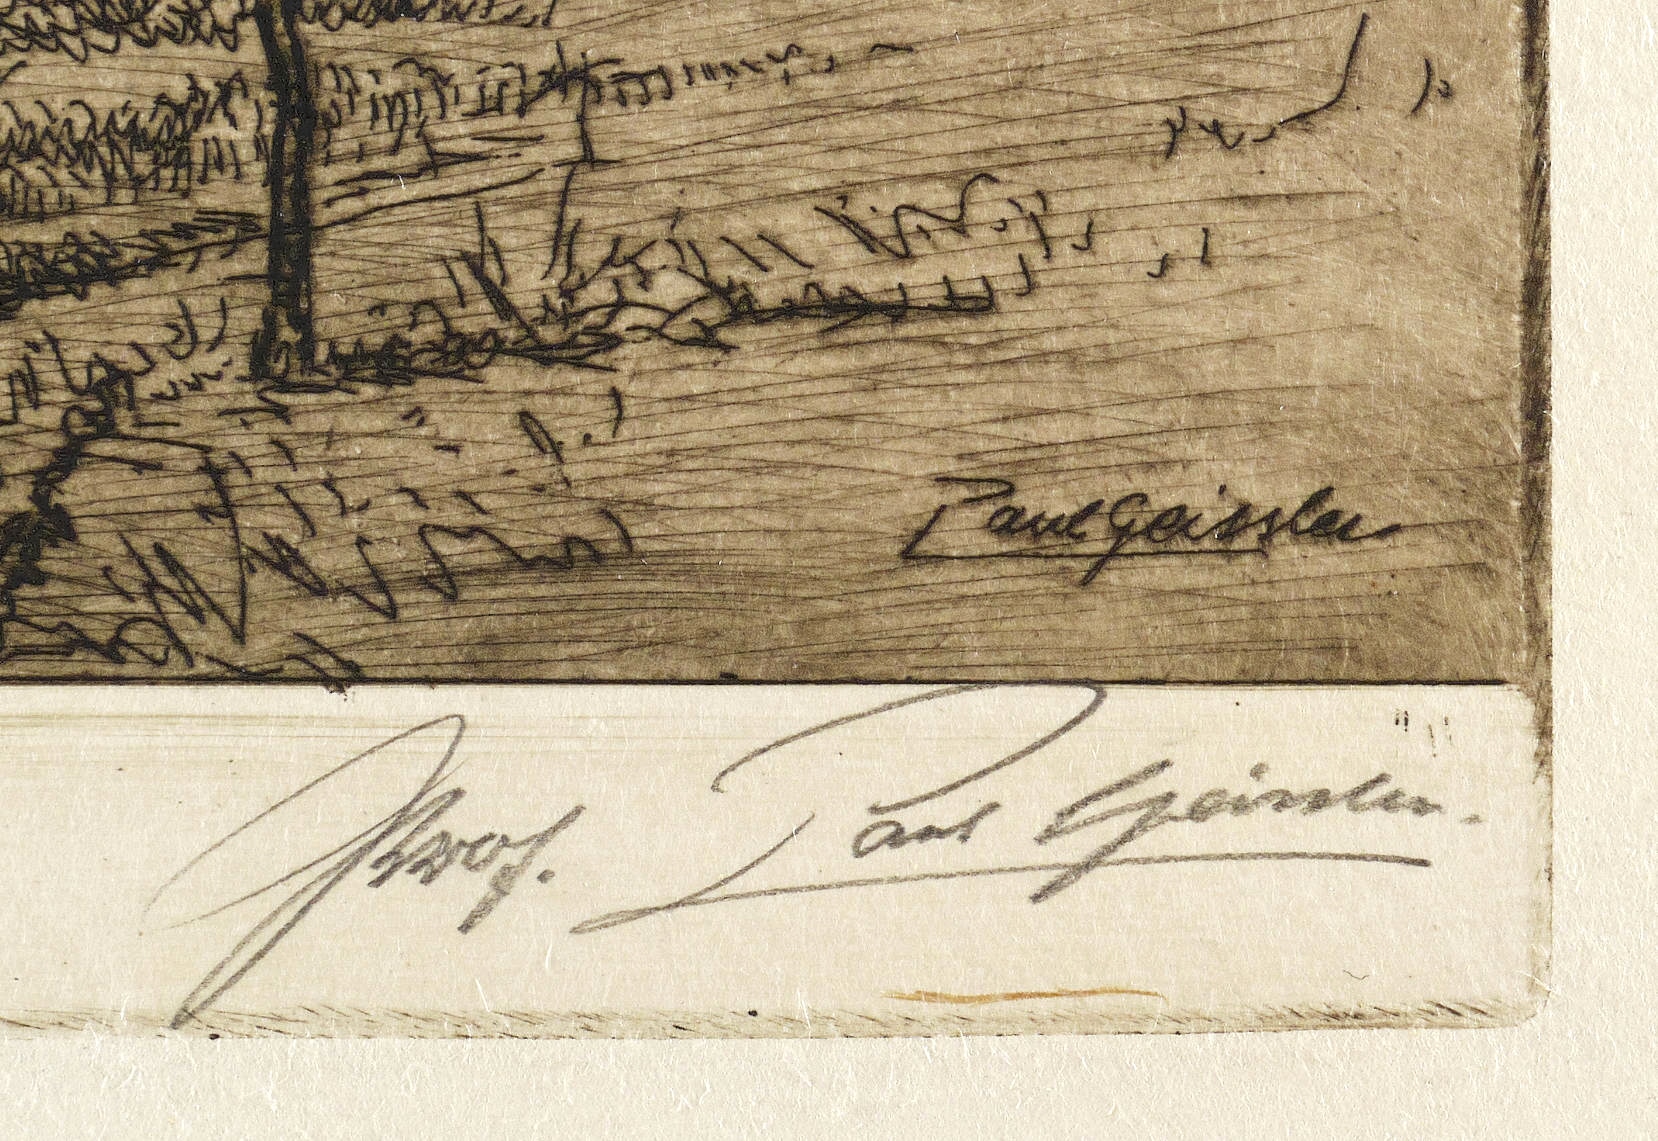 Paul Geissler
Prof. Paul Geissler.